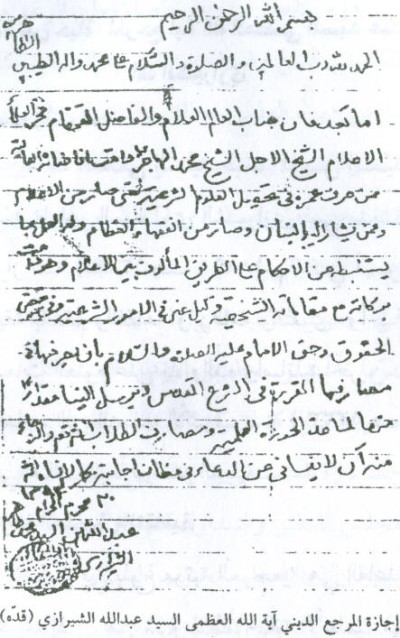 بسم الله الرحمن الرحيم
الحمد لله رب العالمين والصلوة والسلام على محمد واله الطيبين
اما بعد فان جناب العالم العلام والفاضل القمقام فخر
الاعلام الشيخ الاجل الشيخ محمد
ممن صرف عمره في تحصيل العلوم الشرعية حتى صار من الاعلام
وممن يشار اليه بالبنان وصار من الفقهاء العظام
يستنبط من الاحكام على الطريق المألوف بين الاعلام وهو
بركاته وكيل عني في الامور الشرعية وفي
الحقوق وحق الامام عليه الصلوة والسلام بان
مصارفها المقررة في الشرع المقدس ويرسل الينا مقدار
منها لمساعدة الحوزة العلمية ومصارف الطلاب
منه أن لا ينساني من الدعاء في مظان اجابته كما لا انساه
محرم الحرام
عبد الله
الشيرازي
إجازة المرجع الديني آية الله العظمى السيد عبدالله الشيرازي (قدّه)